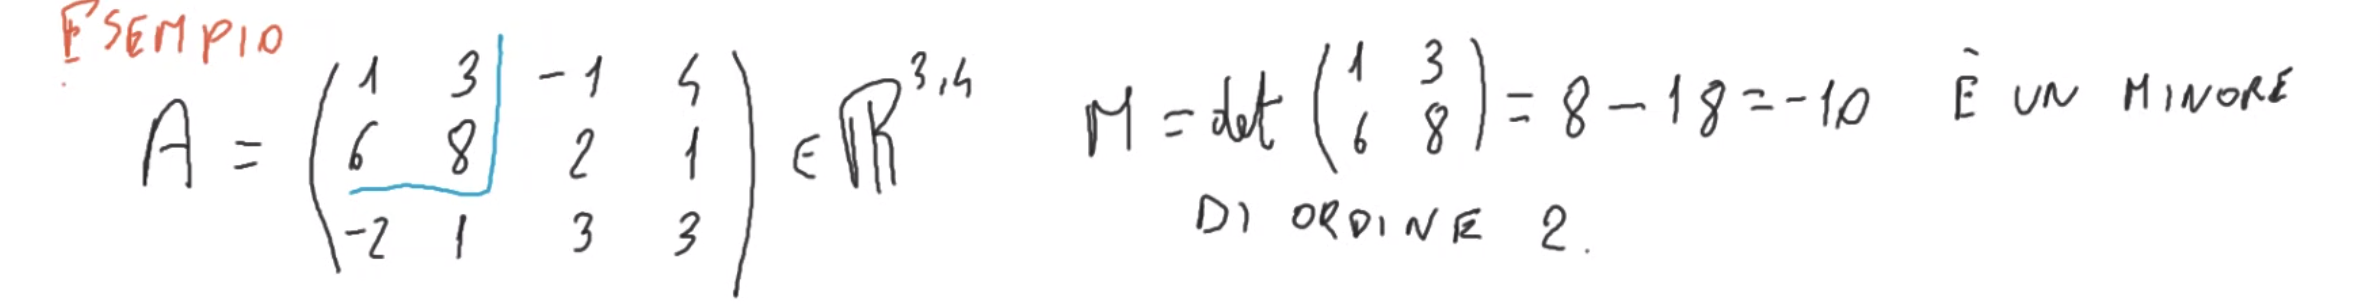 ESEMPIO
A = ( 1 3 -1 4
6 8 2 1
-2 1 3 3 ) ∈ ℝ^{3,4}
M = det ( 1 3
6 8 ) = 8 - 18 = -10 È UN MINORE
DI ORDINE 2.